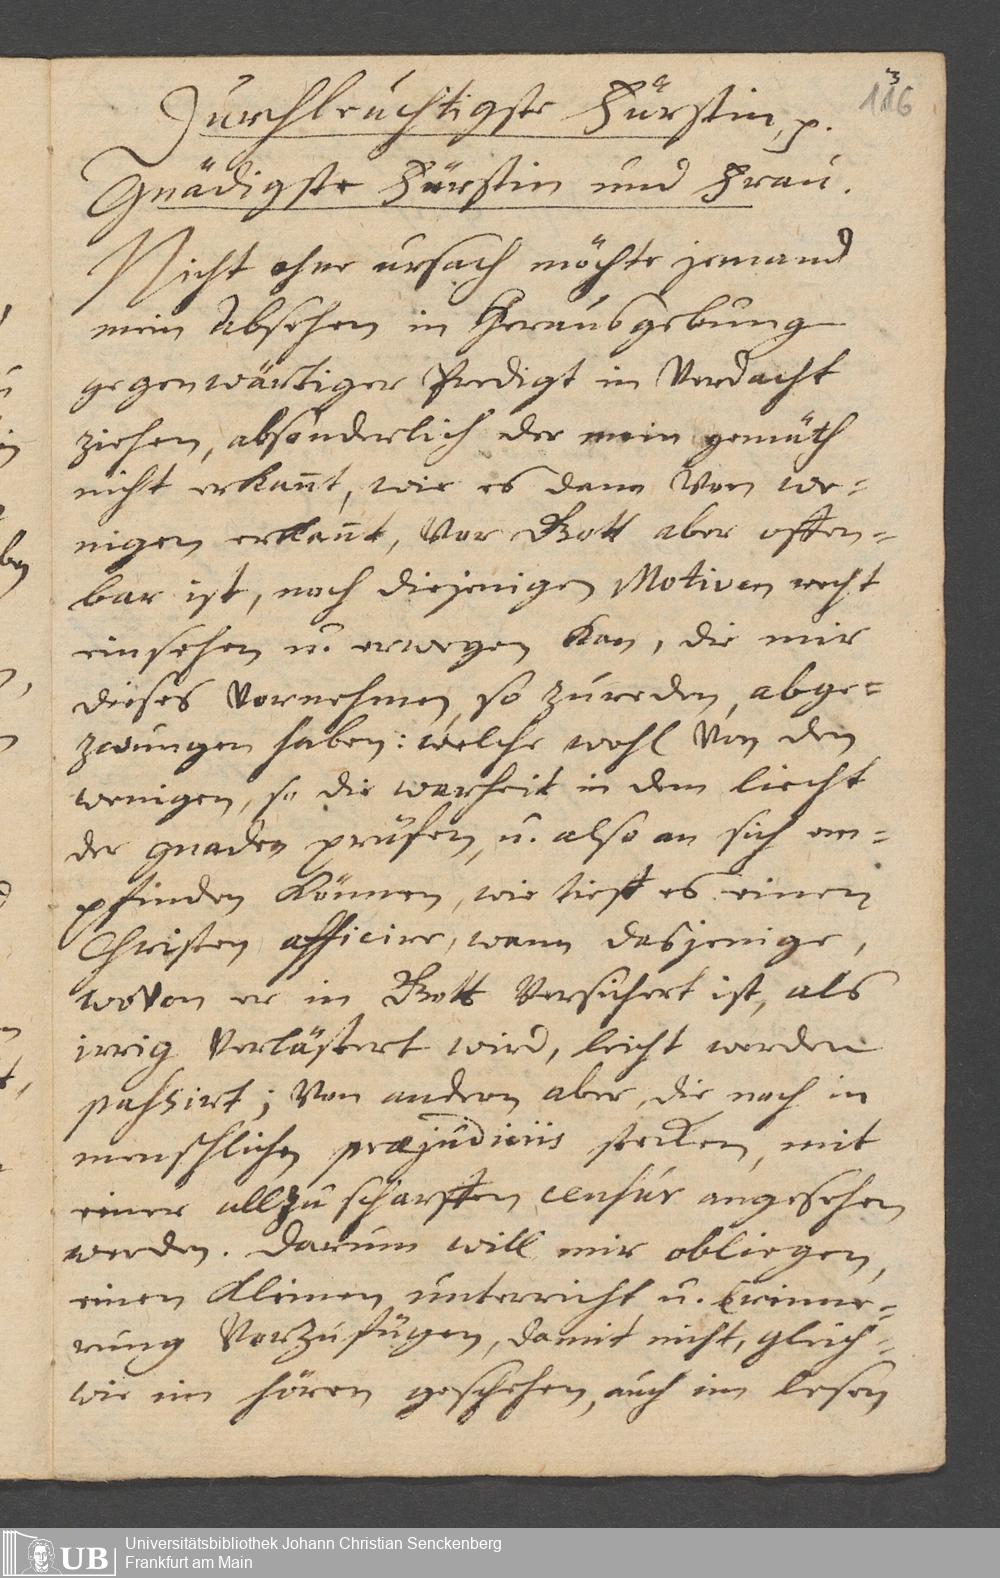 3
116
Durchleuchtigste Fürstin, p.
Gnädigste Fürstin und Frau.
Nicht ohne ursach möchte jemand
mein Absehen in Herausgebung
gegenwärtiger Predigt in Verdacht
ziehen, absonderlich der mein gemüth
nicht erkañt, wie es dann Von we-
nigen erkañt, Vor Gott aber offen-
bar ist, noch diejenigen Motiven recht
einsehen u. erwegen kan, die mir
dieses Vornehmen, so zureden, abge-
zwungen haben: welche wohl Von den
wenigen, so die warheit in dem liecht
der gnaden prüfen, u. also an sich em-
pfinden können, wie tieff es einen
Christen afficire, wann dasjenige,
woVon er in Gott Versichert ist, als
irrig Verlästert wird, leicht werden
passirt; Von andern aber, die noch in
menschlichen præjudiciis stecken, mit
einer allzu scharffen censur angesehen
werden. Darum will mir obliegen,
einen kleinen unterricht u. Erinne-
rung Vorzufügen, damit nicht, gleich-
wie im hören geschehen, auch im lesen
UB
Universitätsbibliothek Johann Christian Senckenberg
Frankfurt am Main